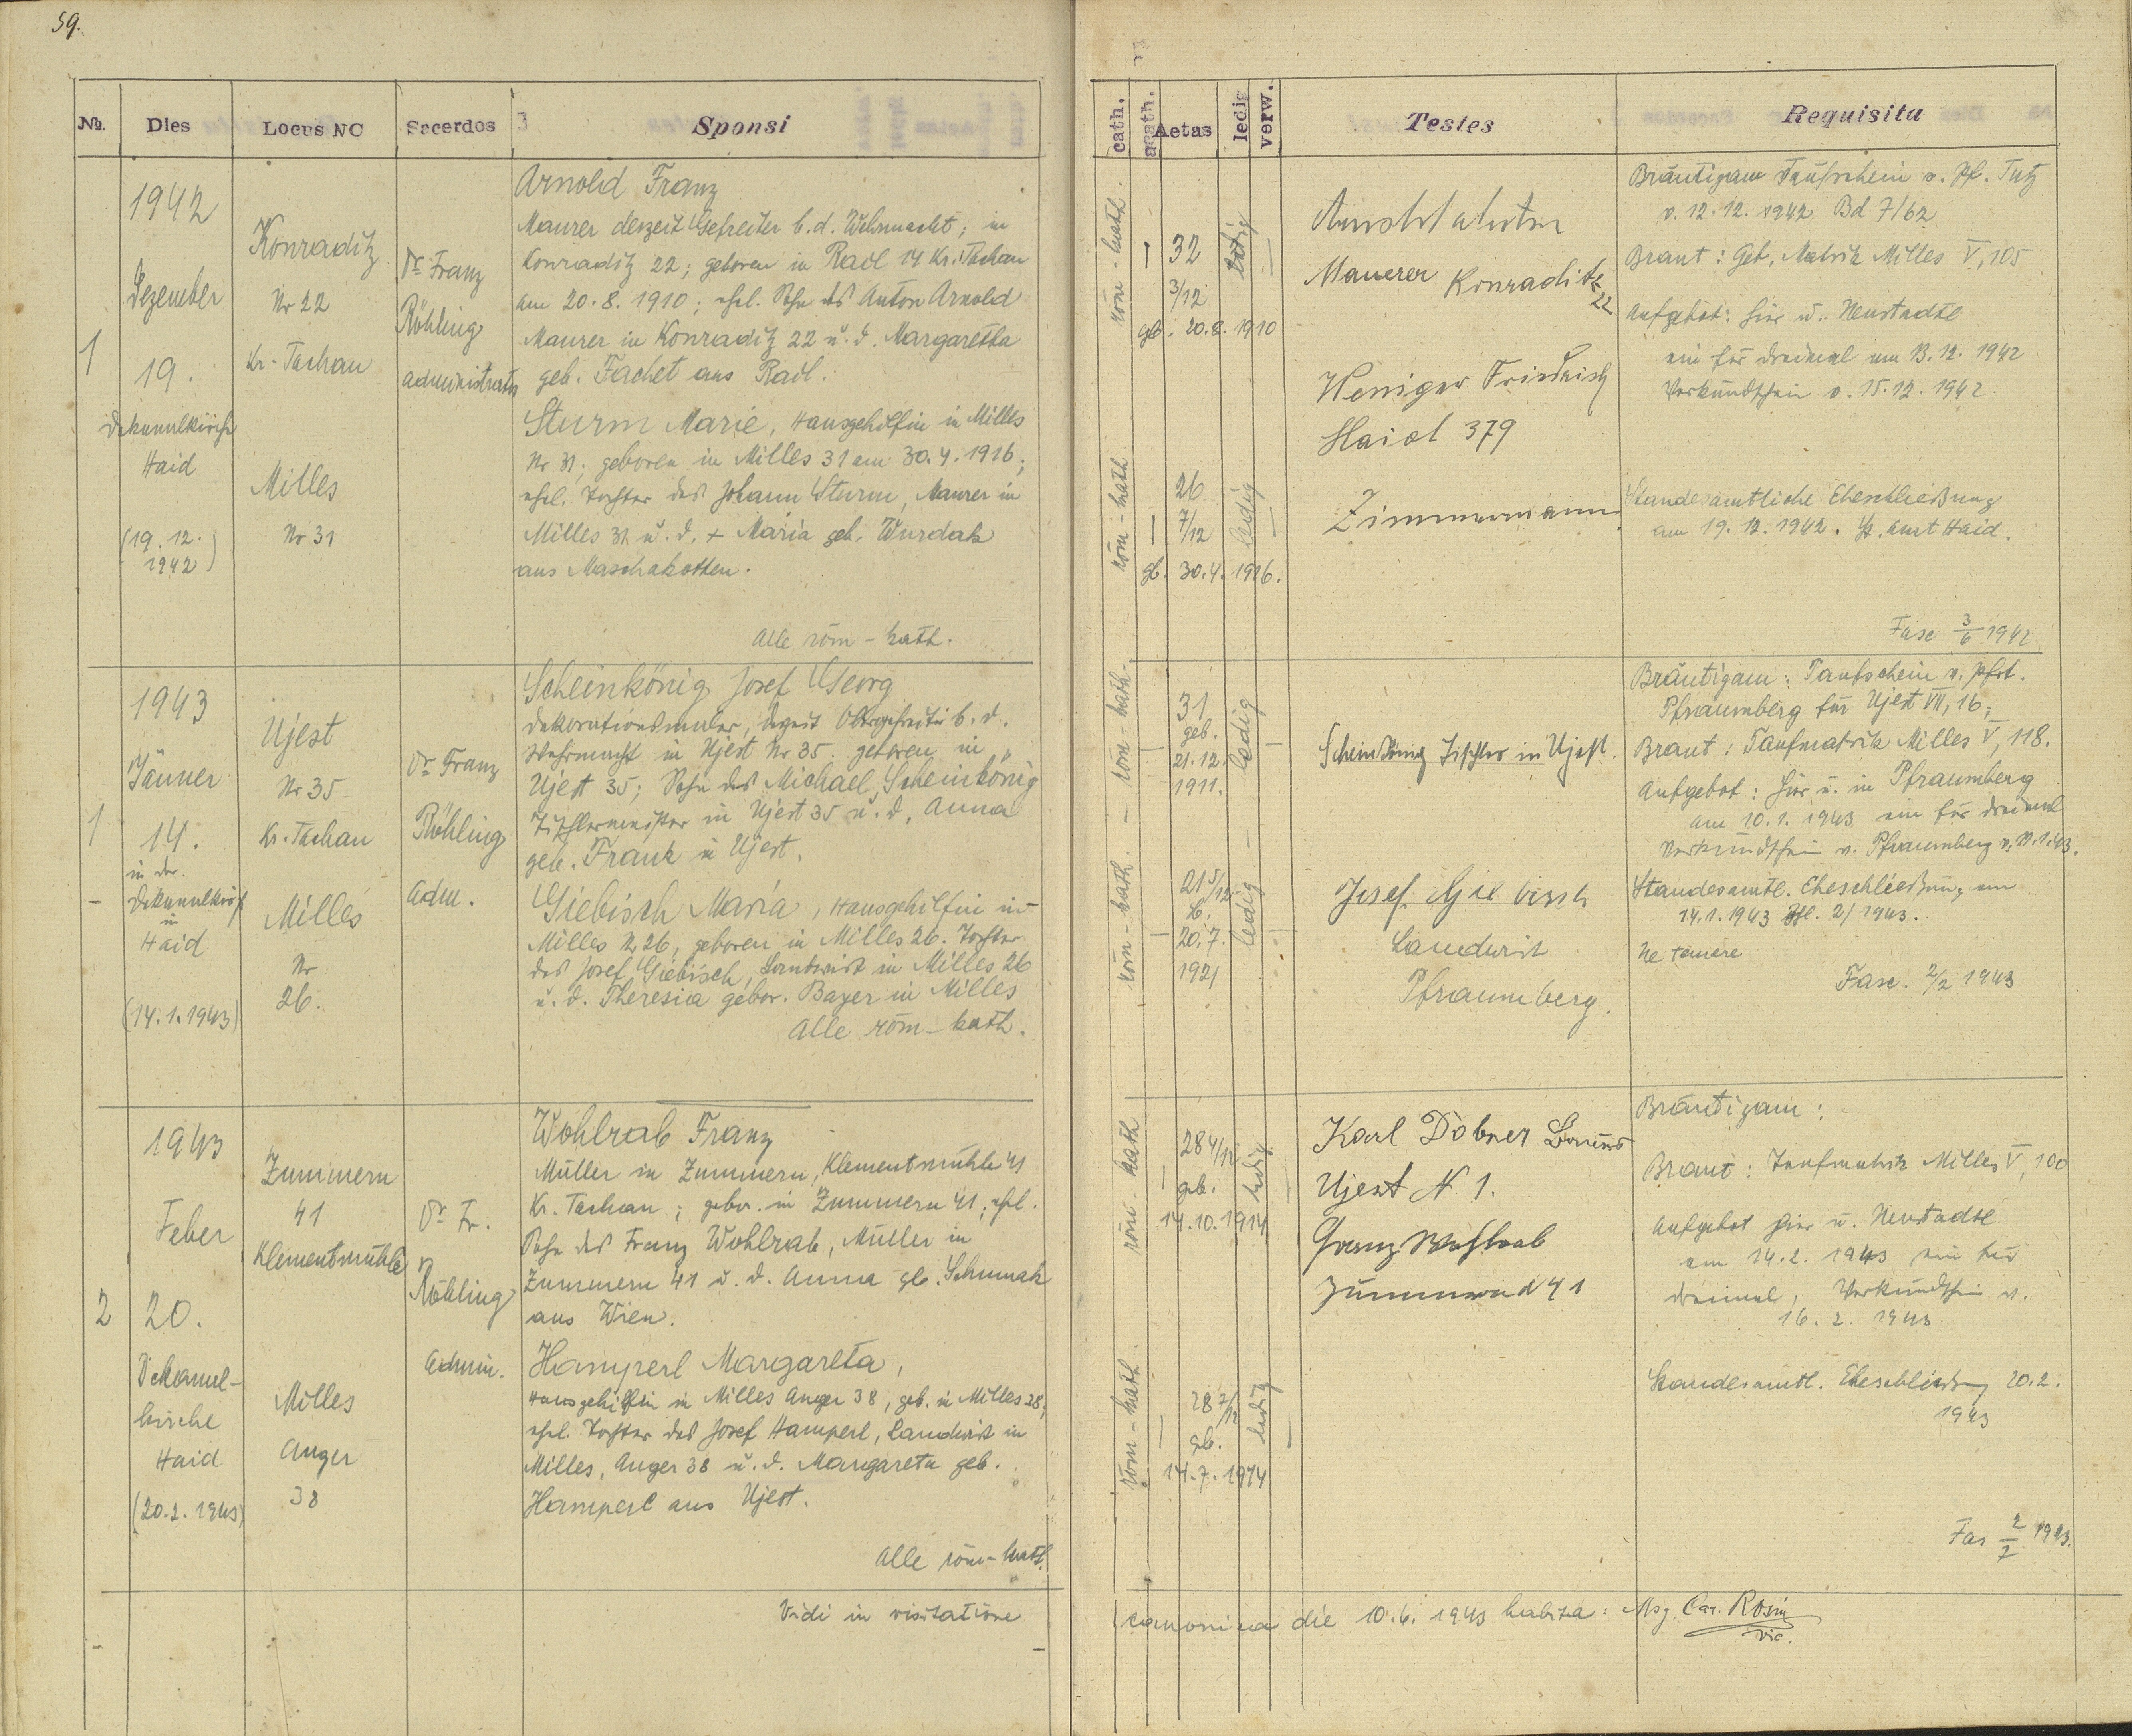 59.
№. Dies Locus NC Sacerdos Sponsi
1
1942
Dezember
19.
Dekanalkirche
Haid
(19.12.
1942)
Konraditz
Nr 22
Kr. Tachau
Milles
Nr 31
Dr. Franz
Röhling
administrator
Arnold Franz
Maurer derzeit Gefreiter b. d. Wehrmacht; in
Konraditz 22; geboren in Rail 14 Kr. Tachau
am 20.8.1910; ehel. Sohn des Anton Arnold
Maurer in Konraditz 22 u. d. Margaretha
geb. Fachet aus Rail.
Sturm Marie, Hausgehilfin in Milles
Nr 31; geboren in Milles 31 am 30.4.1916;
ehel. Tochter des Johann Sturm, Maurer in
Milles 31 u. d. + Maria geb. Wurdak
aus Maschakotten.
Alle röm-kath.
1
1943
Jänner
14.
in der
Dekanalkirch
in
Haid
(14.1.1943)
Ujest
Nr 35
Kr. Tachau
Milles
Nr
26.
Dr. Franz
Röhling
Adm.
Scheinkönig Josef Georg
Dekorationsmaler, derzeit Obergefreiter b. d.
Wehrmacht in Ujest Nr 35. geboren in
Ujest 35; Sohn des Michael Scheinkönig
Tischlermeister in Ujest 35 u. d. Anna
geb. Frank in Ujest.
Giebisch Maria, Hausgehilfin in
Milles Nr 26, geboren in Milles 26. Tochter
des Josef Giebisch, Landwirt in Milles 26
u. d. Theresia gebor. Bayer in Milles
Alle röm-kath.
2
1943
Feber
20.
Dekanal-
kirche
Haid
(20.2.1943)
Zummern
41
Klementmühle
Milles
Anger
38
Dr. Fr.
Röhling
Admin.
Wohlrab Franz
Müller in Zummern, Klementmühle 41
Kr. Tachau; gebor. in Zummern 41; ehel.
Sohn des Franz Wohlrab, Müller in
Zummern 41 u. d. Anna geb. Schumak
aus Wien.
Hamperl Margareta,
Hausgehilfin in Milles Anger 38, geb. in Milles 38,
ehel. Tochter des Josef Hamperl, Landwirt in
Milles, Anger 38 u. d. Margareta geb.
Hamperl aus Ujest.
Alle röm-kath.
Vidi in visitatione
cath. acath. Aetas ledig verw. Testes Requisita
röm-kath.
32
3/12
geb. 20.8.1910
ledig
röm-kath
26
7/12
gb. 30.4.1916.
ledig
Maurer Konraditz
22
Weniger Friedrich
Haid 379
Zimmermann
Bräutigam Taufschein v. Pf. Tutz
v. 12.12.1942 Bd 7/62
Braut: Geb. Matrik Milles V, 105
Aufgebot: hier u. Neustadtl
ein für dreimal am 13.12.1942
Verkündschein v. 15.12.1942.
Standesamtliche Eheschließung
am 19.12.1942. St. Amt Haid.
Fasc 3/6 1942
röm-kath.
31
geb.
21.12.
1911.
ledig
röm-kath.
21 5/12
b.
20.7.
1921
ledig
Scheinkönig Tischler in Ujest.
Josef Giebisch
Landwirt
Pfraumberg.
Bräutigam: Taufschein v. Pfrt.
Pfraumberg für Ujest VII, 16;
Braut: Taufmatrik Milles V, 118.
Aufgebot: hier u. in Pfraumberg
am 10.1.1943 ein für dreimal
Verkündschein v. Pfraumberg v. 11.1.43.
Standesamtl. Eheschließung am
14.1.1943 Zl. 2/1943.
Ne temere
Fasc. 2/2 1943
röm. kath
28 4/12
geb.
14.10.1914
ledig
röm-kath.
28 7/12
geb.
14.7.1914
ledig
Karl Dobner
Ujest N 1.
Franz Wohlrab
Zummern 41
Bräutigam:
Braut: Taufmatrik Milles V, 100
Aufgebot hier u. Neustadtl
am 14.2.1943 ein für
dreimal, Verkündschein v.
16.2.1943
Standesamtl. Eheschließung 20.2.
1943
Fas 2/2 1943.
canonica die 10.6.1943 habita: Msg. Car. Rosin
vic.